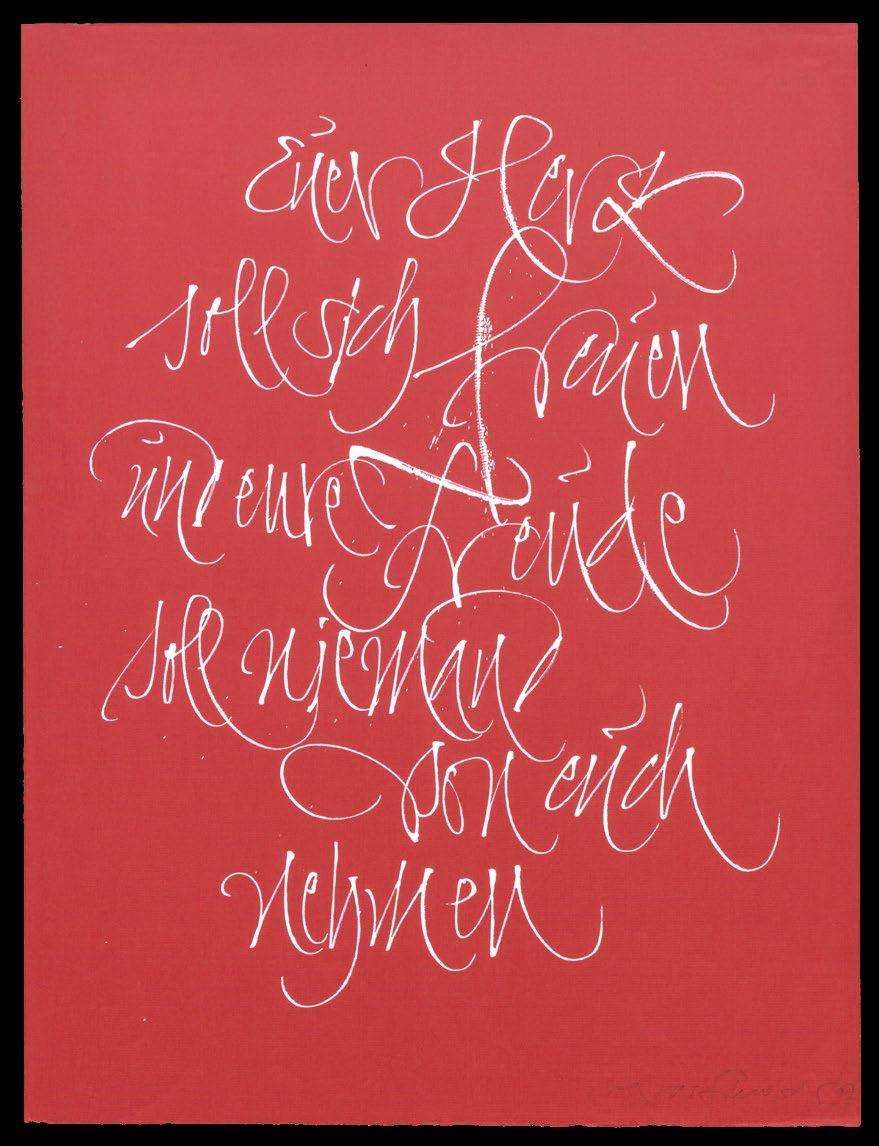 Euer Herz
soll sich freuen
und eure Freude
soll niemand
von euch
nehmen